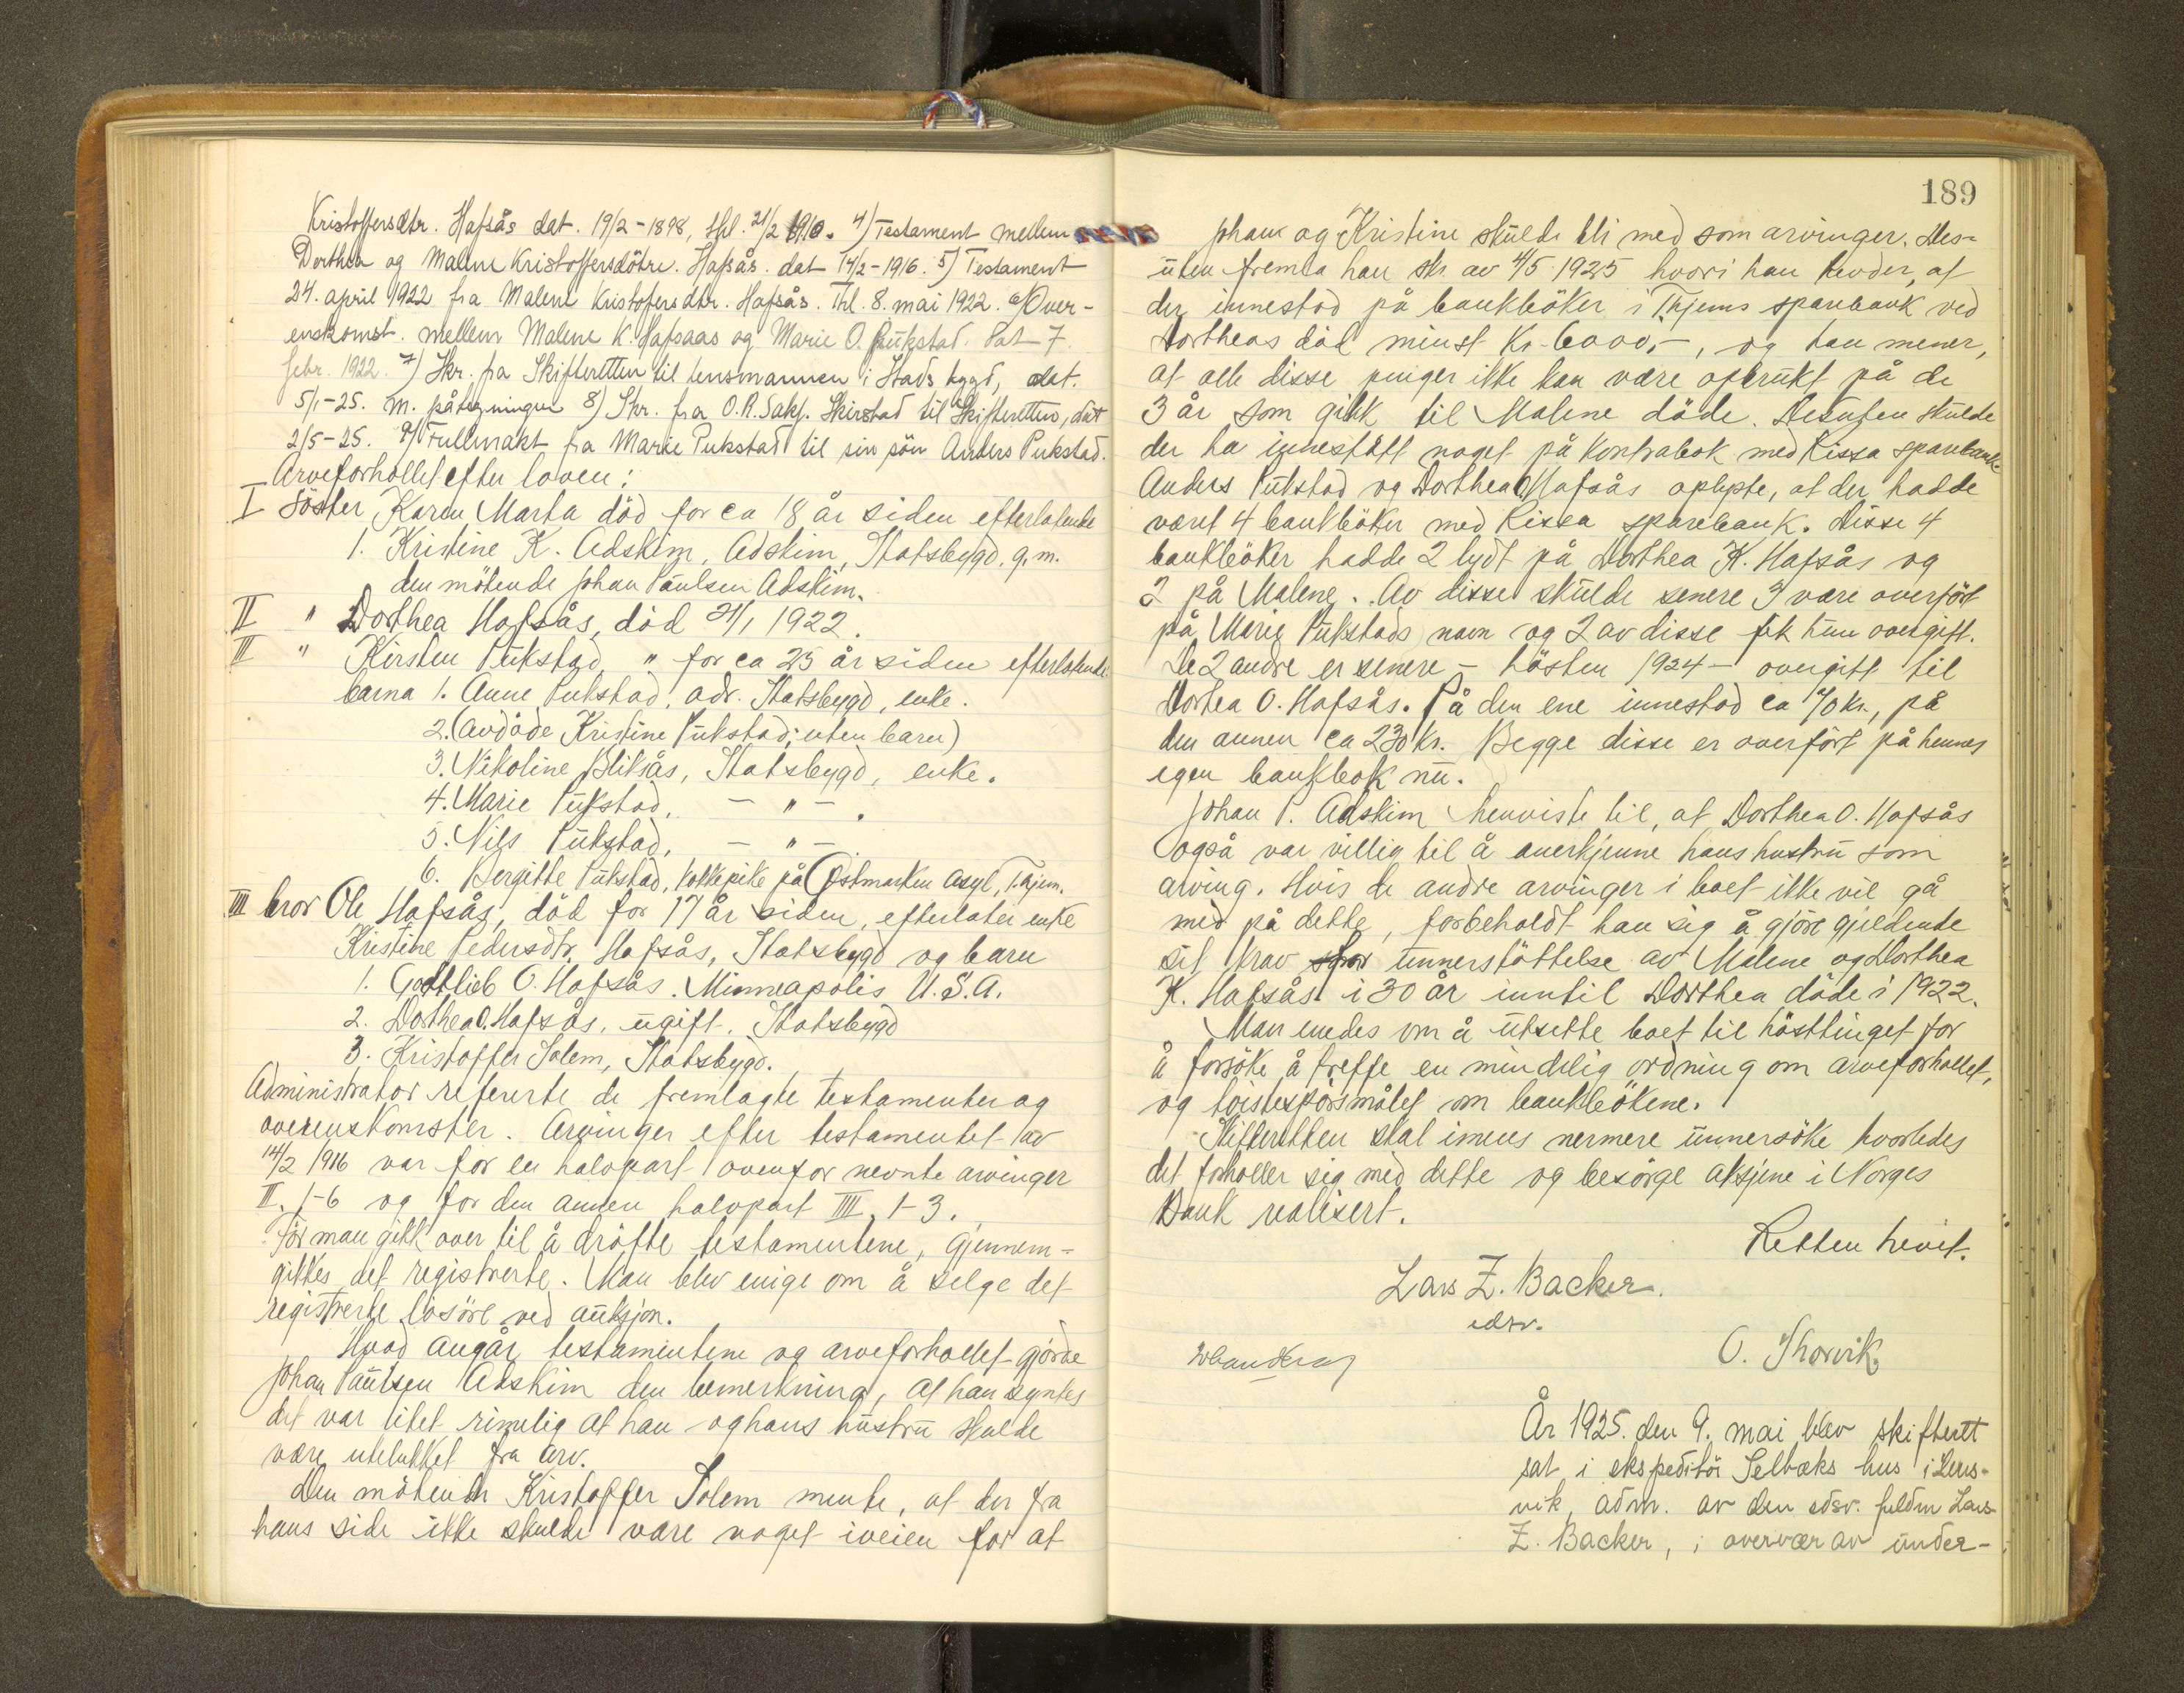 Kristoffersdtr. Hafsås dat. 19/2-1898, thl. 21/2 1910. 4) Testament mellem
Dorthea og Malene Kristoffersdötre. Hafsås. dat 14/2-1916. 5) Testament
24. april 1922 fra Malene Kristofersdtr. Hafsås. Thl. 8. mai 1922. 6) Over-
enskomst. mellem Malene K. Hafsaas og Marie O. Pukstad. Dat 7.
febr. 1922. 7) Skr. fra Skifteretten til lensmannen i Stads bygd, dat.
5/1-25. m. påtegninger 8) Skr. fra O.R. Sakf. Skirstad til Skifteretten, dat
2/5-25. 9) Fullmakt fra Marie Pukstad til sin sön Anders Pukstad.
Arveforholdet efter loven:
I Söster Karen Marta död for ca 18 år siden efterlatende
1. Kristine K. Adskim, Adskim, Statsbygd, g.m.
den mötende Johan Paulsen Adskim.
II " Dorthea Hafsås, död 21/1 1922.
III " Kirsten Pukstad, " for ca 25 år siden efterlatende
barna 1. Anne Pukstad, adr. Statsbygd, enke.
2. (Avdöde Kristine Pukstad; uten barn)
3. Nikoline Bliksås, Statsbygd, enke.
4. Marie Pukstad, — " — .
5. Nils Pukstad, — " — .
6. Bergitte Pukstad, kokkepike på Östmarken Asyl, T.hjem.
IIII bror Ole Hafsås, död for 17 år siden, efterlater enke
Kristine Pedersdtr. Hafsås, Statsbygd og barn
1. Gottlieb O. Hafsås. Minneapolis U.S.A.
2. Dorthea O. Hafsås, ugift. Statsbygd
3. Kristoffer Solem, Statsbygd.
Administrator refererte de fremlagte testamenter og
overenskomster. Arvinger efter testamentet av
14/2 1916 var for en halvpart ovenfor nevnte arvinger
II, 1-6 og for den annen halvpart IIII, 1-3.
För man gikk over til å dröfte testamentene, gjennem-
gikkes det registrerte. Man blev enige om å selge det
registrerte lösöre ved auksjon.
Hvad angår testamentene og arveforholdet gjorde
Johan Paulsen Adskim den bemerkning, at han syntes
det var litet rimelig at han og hans hustru skulde
være utelukket fra arv.
Den mötende Kristoffer Solem mente, at der fra
hans side ikke skulde være noget iveien for at
189
Johan og Kristine skulde bli med som arvinger. Des-
uten fremla han skr. av 4/5 1925 hvori han hevder, at
der innestod på bankböker i Thjems sparebank ved
Dortheas död minst Kr. 6000,-, og han mener,
at alle disse penger ikke kan være opbrukt på de
3 år som gikk til Malene döde. Desuten skulde
der ha innestått noget på kontrabok med Rissa sparebank
Anders Pukstad og Dorthea O. Hafsås oplyste, at der hadde
været 4 bankböker med Rissa sparebank. Disse 4
bankböker hadde 2 lydt på Dorthea K. Hafsås og
2 på Malene. Av disse skulde senere 3 være overfört
på Marie Pukstads navn og 2 av disse fik hun overgitt.
De 2 andre er senere - hösten 1924 - overgitt til
Dorthea O. Hafsås. På den ene innestod ca 70 kr., på
den annen ca 230 kr. Begge disse er overfört på hennes
egen bankbok nu.
Johan P. Adskim henviste til, at Dorthea O. Hafsås
også var villig til å anerkjenne hans hustru som
arving. Hvis de andre arvinger i boet ikke vil gå
med på dette, forbeholdt han sig å gjöre gjeldende
sit krav for unnerstöttelse av Malene og Dorthea
K. Hafsås i 30 år inntil Dorthea döde i 1922.
Man enedes om å utsette boet til hösttinget for
å forsöke å treffe en mindelig ordning om arveforholdet,
og tvistespörsmålet om bankbökene.
Skifteretten skal imens nermere unnersöke hvorledes
det forholder sig med dette og besörge aksjene i Norges
Bank realisert.
Retten hevet.
Lars Z. Backer.
edsv.
O. Thorvik
År 1925. den 9. mai blev skifterett
sat i ekspeditör Selbæks hus i Lens-
vik, adm. av den edsv. fuldm Lars
Z. Backer, i overvær av under-